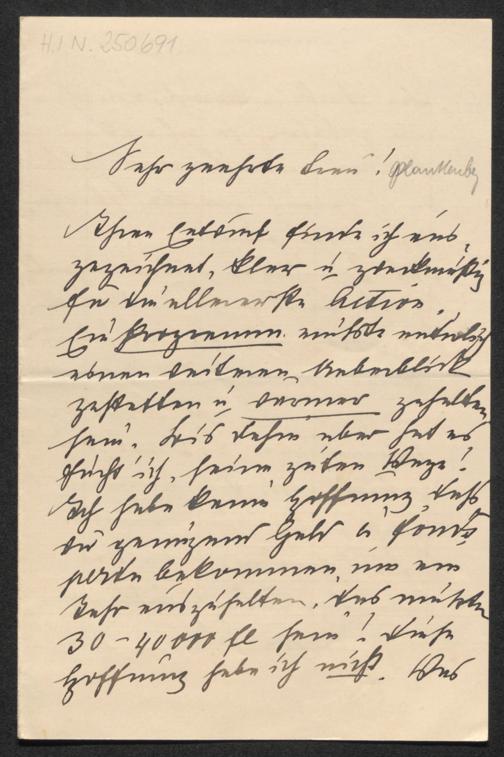 H.I.N. 250.691
Sehr geehrte Frau!
Ihren Entwurf finde ich aus-
gezeichnet, klar u. zweckmäßig
für die allererste Action.
Ein Programm müßte natürlich
einen weiteren Ueberblick
gestatten u. wärmer gehalten
sein. Bis dahin aber hat es
fürcht' ich, seine guten Wege!
Ich habe keine Hoffnung daß
wir genügend Geld u. Fonds
bekommen, um ein
Jahr auszuhalten. Das müßten
30 – 40 000 fl sein! Diese
Hoffnung habe ich nicht. Was